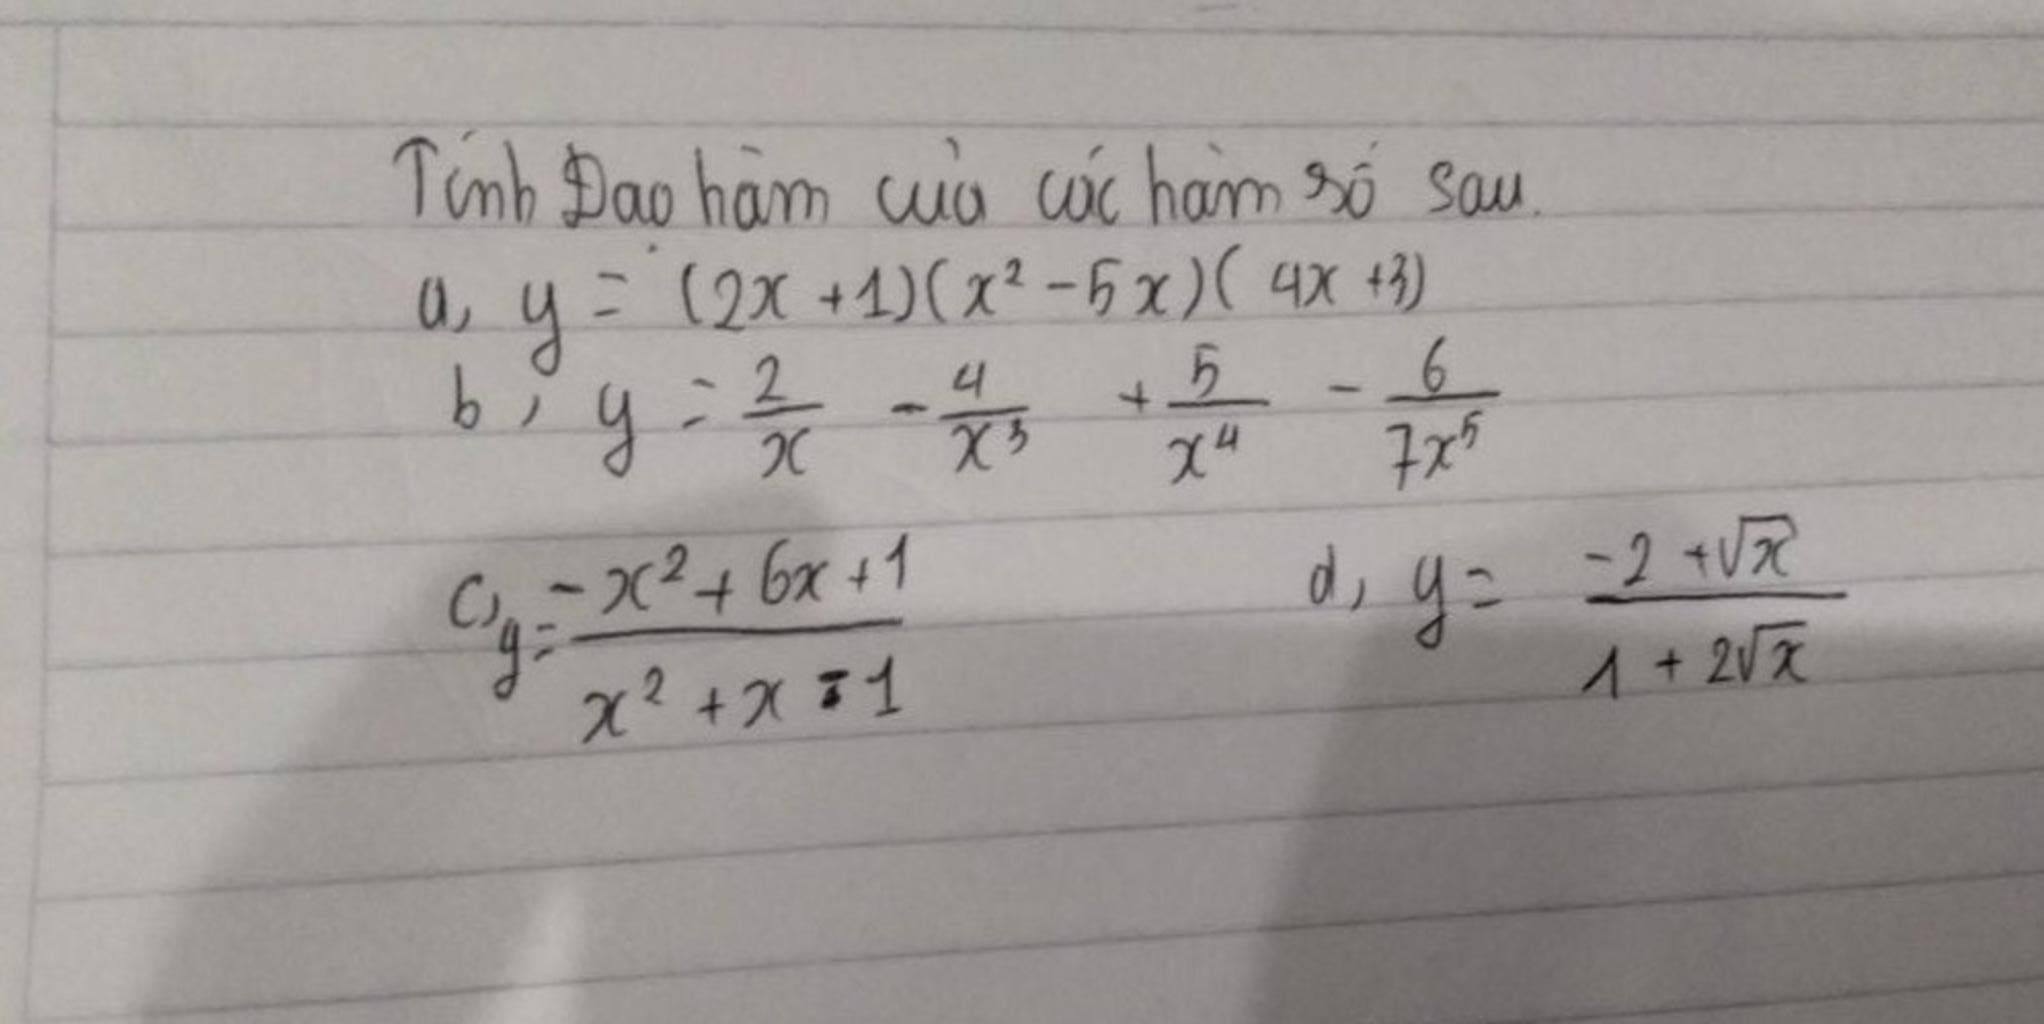 Tính Đạo hàm của các hàm số sau.
a, y = (2x + 1)(x² - 5x)( 4x + 3)
b, y = 2/x - 4/x³ + 5/x⁴ - 6/7x⁵
c, y = -x² + 6x + 1 / x² + x - 1 d, y = -2 + √x / 1 + 2√x